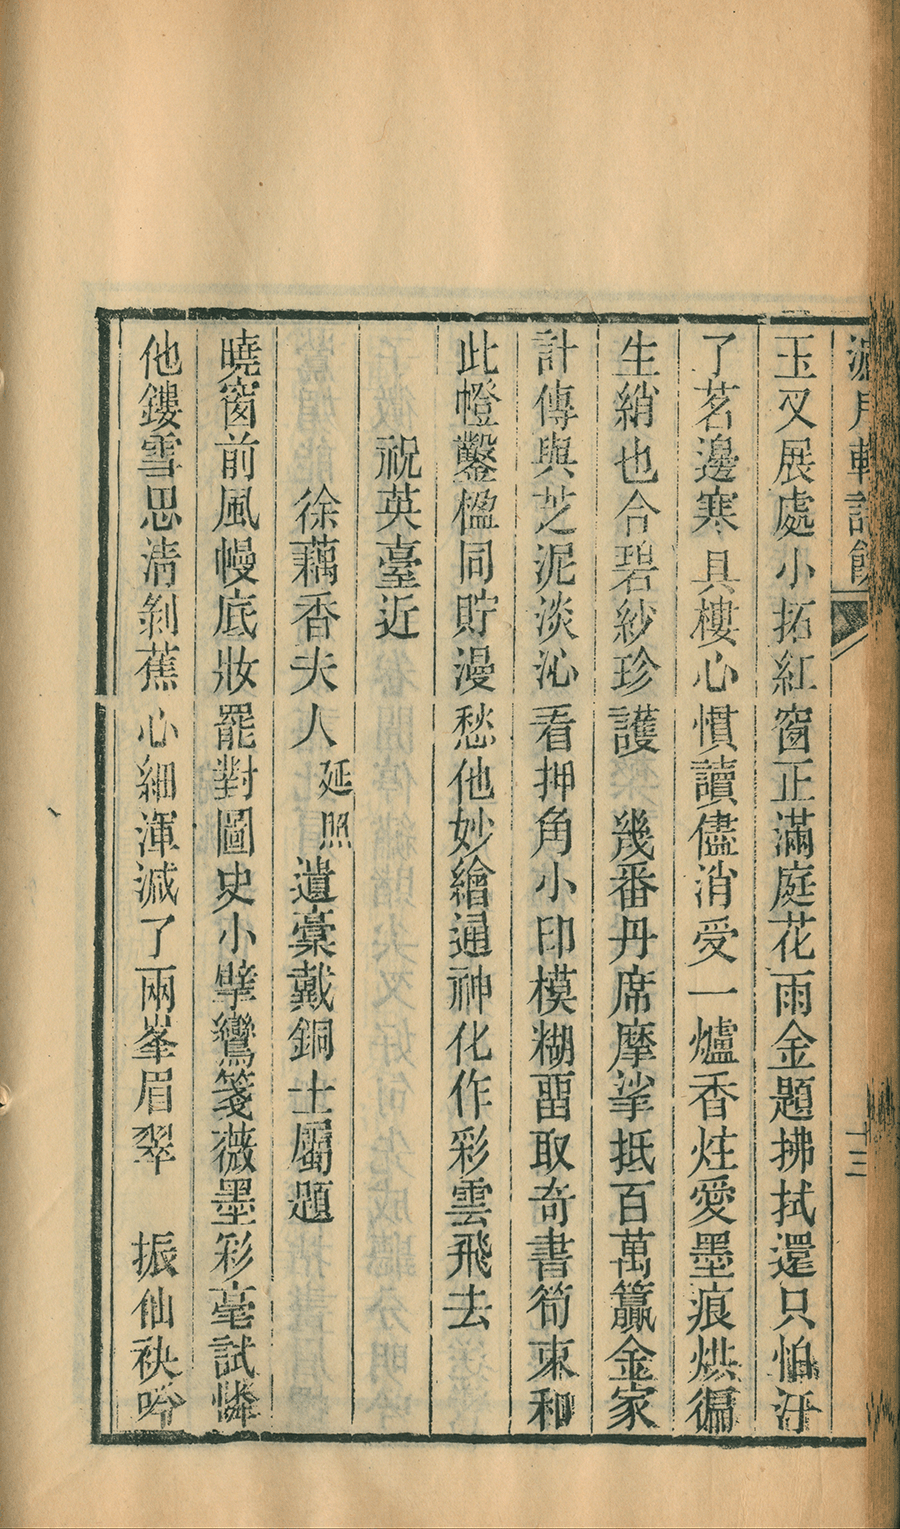 玉叉展處小拓紅窗正滿庭花雨金題拂拭還只怕汙
了茗邊寒具樓心慣讀儘消受一爐香炷愛墨痕烘徧
生綃也合碧紗珍護　幾番丹席摩挲抵百萬籯金家
計傳與芝泥淡沁看押角小印模糊畱取奇書笥東和
此橙鑿楹同貯漫愁他妙繪通神化作彩雲飛去
祝英臺近
徐藕香夫人延照遺稾戴銅士屬題
曉窗前風幔底妝罷對圖史小擘鸞箋薇墨彩毫試憐
他鏤雪思淸剝蕉心細渾減了兩峯眉翠　振仙袂吟
十三